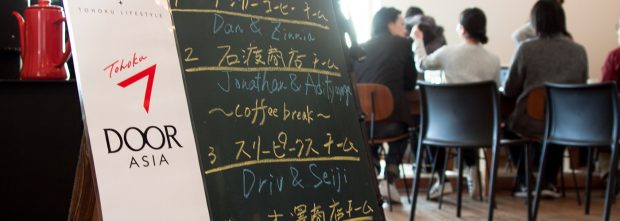 TOHOKU LIFESTYLE
Tohoku
DOOR
ASIA
コーヒーチーム
Dan & Zinnia
2 石渡商店チーム
Jonathan &
~Coffee break~
3 スリーピークスチーム
Driv & Seiji
澤商店チーム